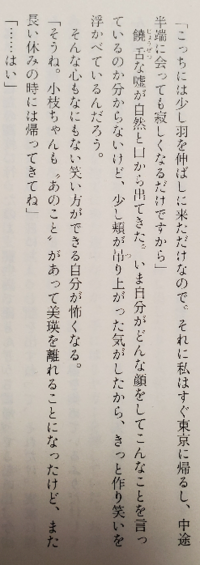 「こっちには少し羽を伸ばしに来ただけなので。それに私はすぐ東京に帰るし、中途
半端に会っても寂しくなるだけですから」
饒舌な嘘が自然と口から出てきた。いま自分がどんな顔をしてこんなことを言っ
ているのか分からないけど、少し頬が吊り上がった気がしたから、きっと作り笑いを
浮かべているんだろう。
そんな心もなにもない笑い方ができる自分が怖くなる。
「そうね。小枝ちゃんも〝あのこと〟があって美瑛を離れることになったけど、また
長い休みの時には帰ってきてね」
「……はい」